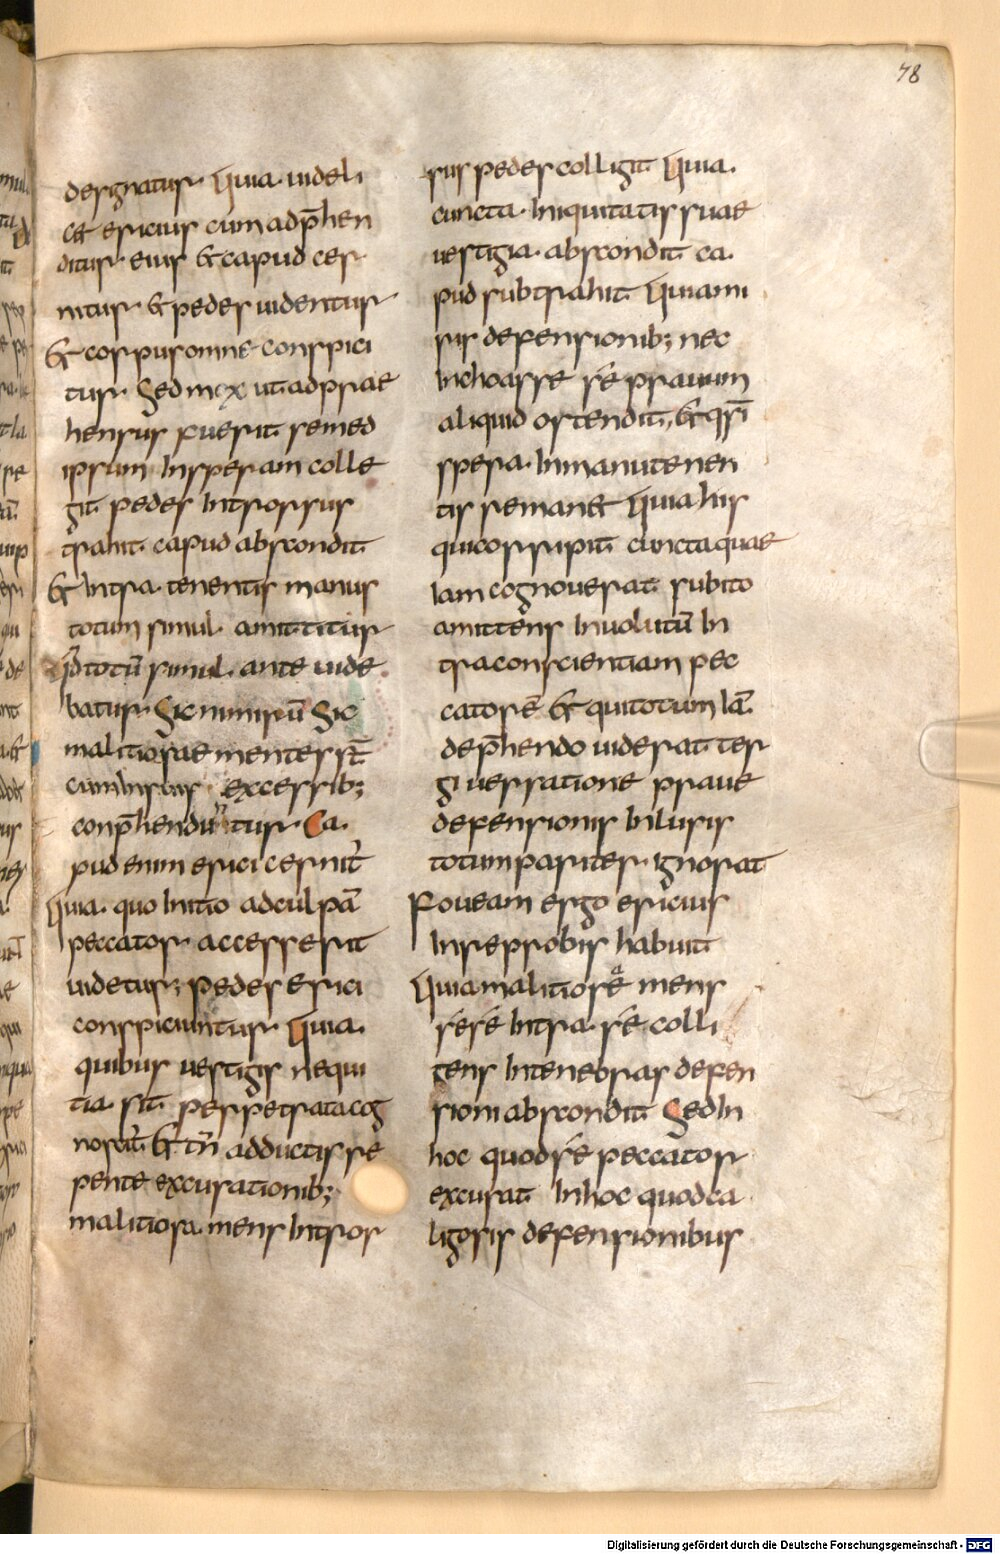 78
designatur Quia uideli
cet ericius cum adp̄hen
ditur eius & capud cer
nitur & pedes uidentur
& corpus omne conspici
tur Sed mox ut adprae
hensus fuerit semed
ipsum Insperam colle
git pedes Introrsus
trahit capud abscondit
& Intra tenentis manus
totum simul amittitur
qd totū simul ante uide
batur Sic nimirū Sic
malitiosae mentes st̄
cum Insuis excessib;
conp̄hendūntur Ca
pud enim erici cernit̄
Quia quo Initio adculpā
peccator accesserit
uidetur; pedes erici
conspiciuntur Quia
quibus uestigiis nequi
tia sit perpetrata cog
noscit̄ & tn̄ adductis re
pente excusationib;
malitiosa mens Intror
sus pedes colligit Quia
cuncta Iniquitatis suae
uestigia abscondit ca
pud subtrahit Quia mi
ris defensionib; nec
Inchoasse sé prauum
aliquid ostendit, & qsī
spera In manu tenen
tis reman& Quia his
qui corripit cuncta quae
Iam cognouerat subito
amittens Inuolutū In
tra conscientiam pec
catorē & qui totum Iā
dep̄hendo uiderat ter
giuersatione praue
defensionis Inlusis
totum pariter ignorat
Foueam ergo ericius
In reprobis habuit
Quia malitiose mens
sésé Intra sé colli
gens Intenebras defen
sioni abscondit Sed In
hoc quod sé peccator
excusat In hoc quod ca
ligosis defensionibus
Digitalisierung gefördert durch die Deutsche Forschungsgemeinschaft - DFG